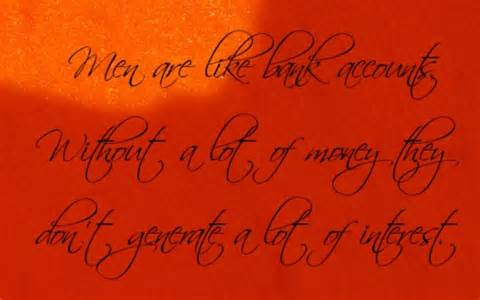 Men are like bank accounts.
Without a lot of money they
don't generate a lot of interest.